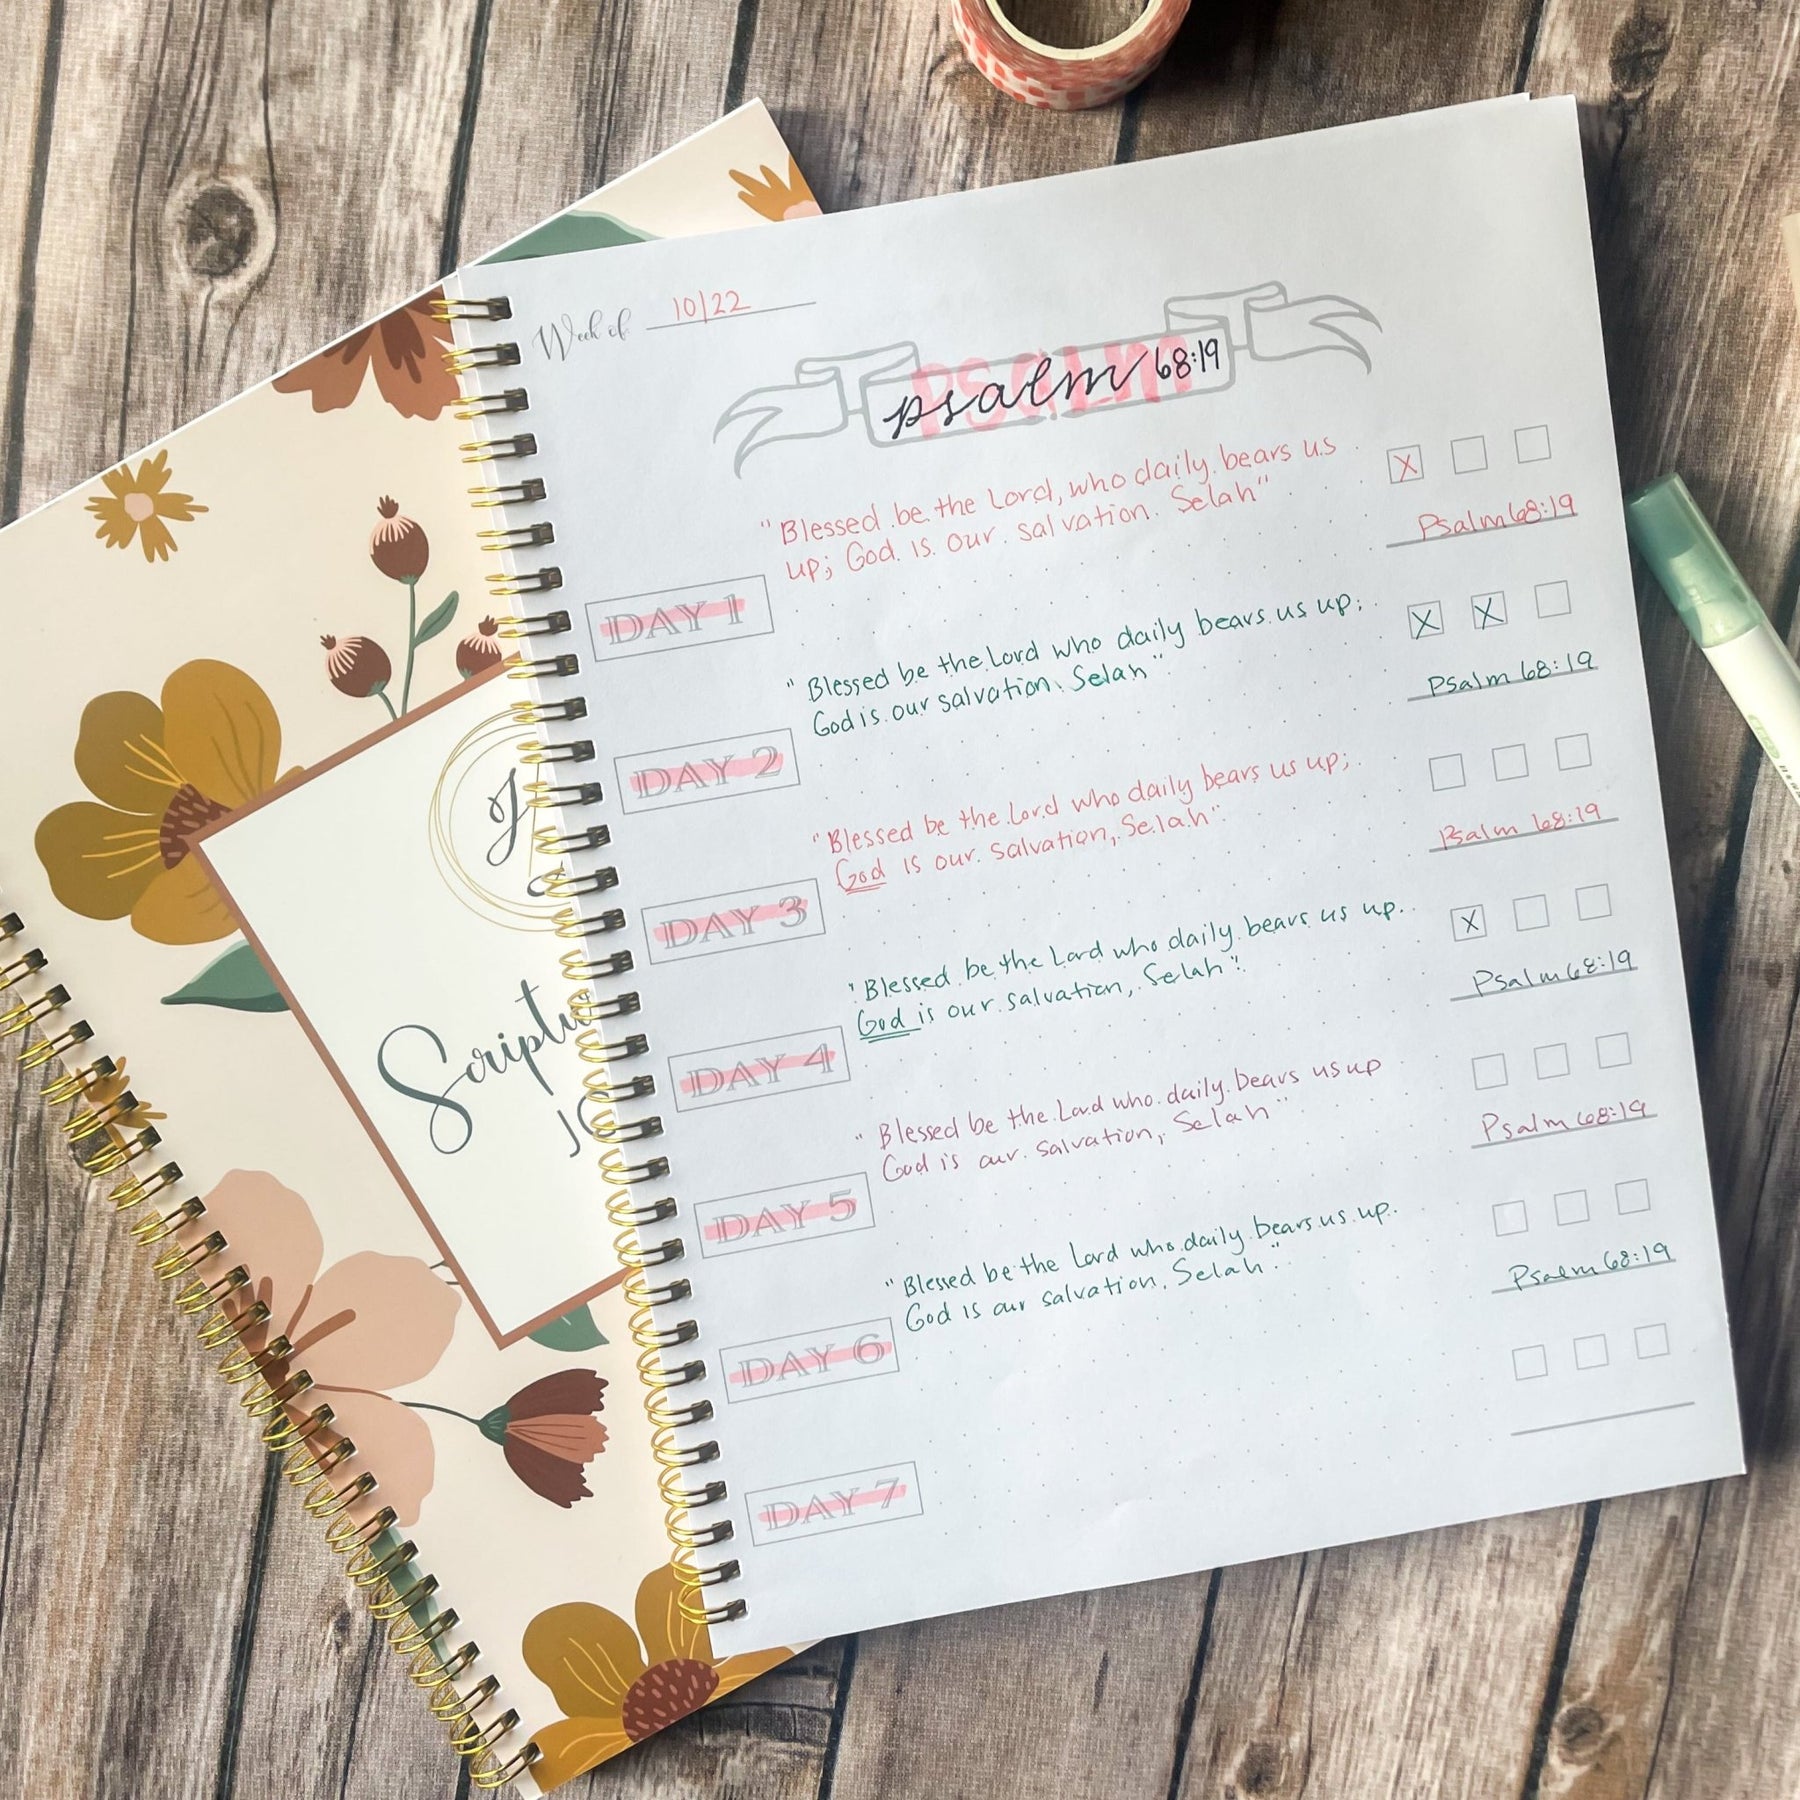 Week of: 10/22
psalm 68:19
Psalm
"Blessed be the Lord, who daily bears us
up; God is our salvation. Selah"
X
Psalm 68:19
DAY 1
"Blessed be the Lord who daily bears us up;
God is our salvation. Selah"
X X
Psalm 68:19
DAY 2
"Blessed be the Lord who daily bears us up;
God is our salvation, Selah"
Psalm 68:19
DAY 3
"Blessed be the Lord who daily bears us up.
God is our salvation, Selah"
X
Psalm 68:19
DAY 4
"Blessed be the Lord who daily bears us up
God is our salvation, Selah"
Psalm 68:19
DAY 5
"Blessed be the Lord who daily bears us up.
God is our salvation. Selah"
Psalm 68:19
DAY 6
DAY 7
Scriptu